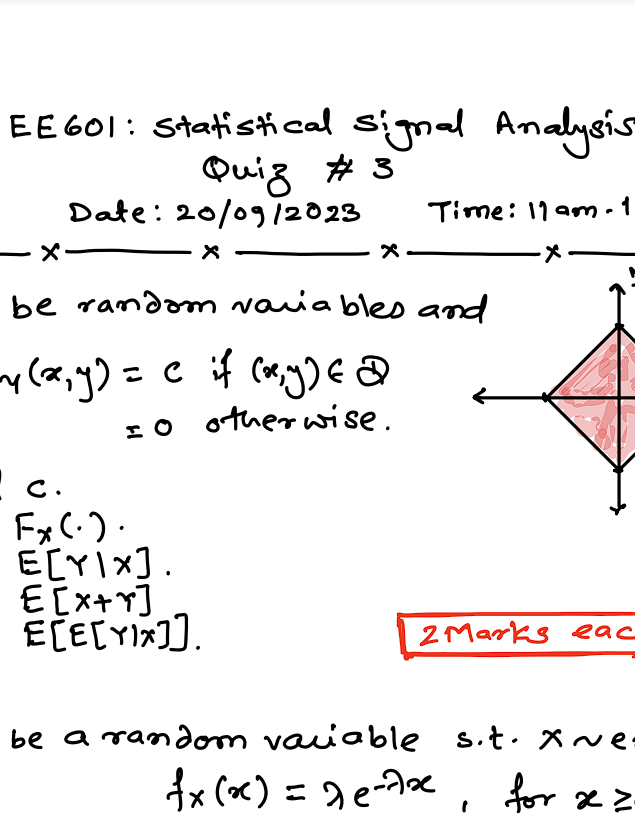 EE601: Statistical Signal Analysis
Quiz # 3
Date: 20/09/2023 Time: 11am-1
x x x x
be random variables and
Y(x,y) = c if (x,y) ∈ D
= 0 otherwise.
c.
Fx(.).
E[Y|X].
E[X+Y]
E[E[Y|X]].
2 Marks eac
be a random variable s.t. X ~ e
fx(x) = λe^-λx, for x ≥